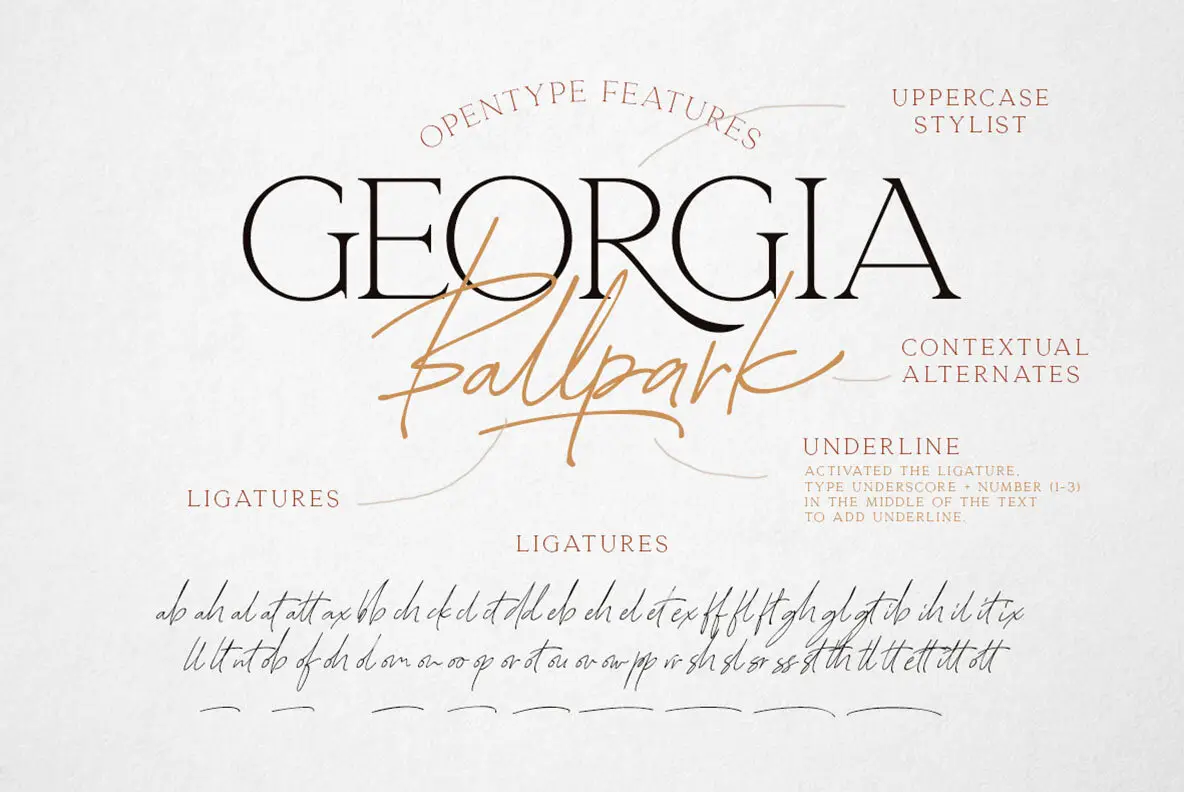 OPENTYPE FEATURES
UPPERCASE
STYLIST
GEORGIA
Ballpark
CONTEXTUAL
ALTERNATES
UNDERLINE
ACTIVATED THE LIGATURE,
TYPE UNDERSCORE + NUMBER (1-3)
IN THE MIDDLE OF THE TEXT
TO ADD UNDERLINE.
LIGATURES
LIGATURES
ab ah al at att ax bb ch ck cl ct dd eb eh el et ex ff fl ft gh gl gt ib ih il it ix
ll lt nt ob of oh ol om on oo op or ot ou ov ow pp rr sh sl sr ss st th tl tt ett itt ott